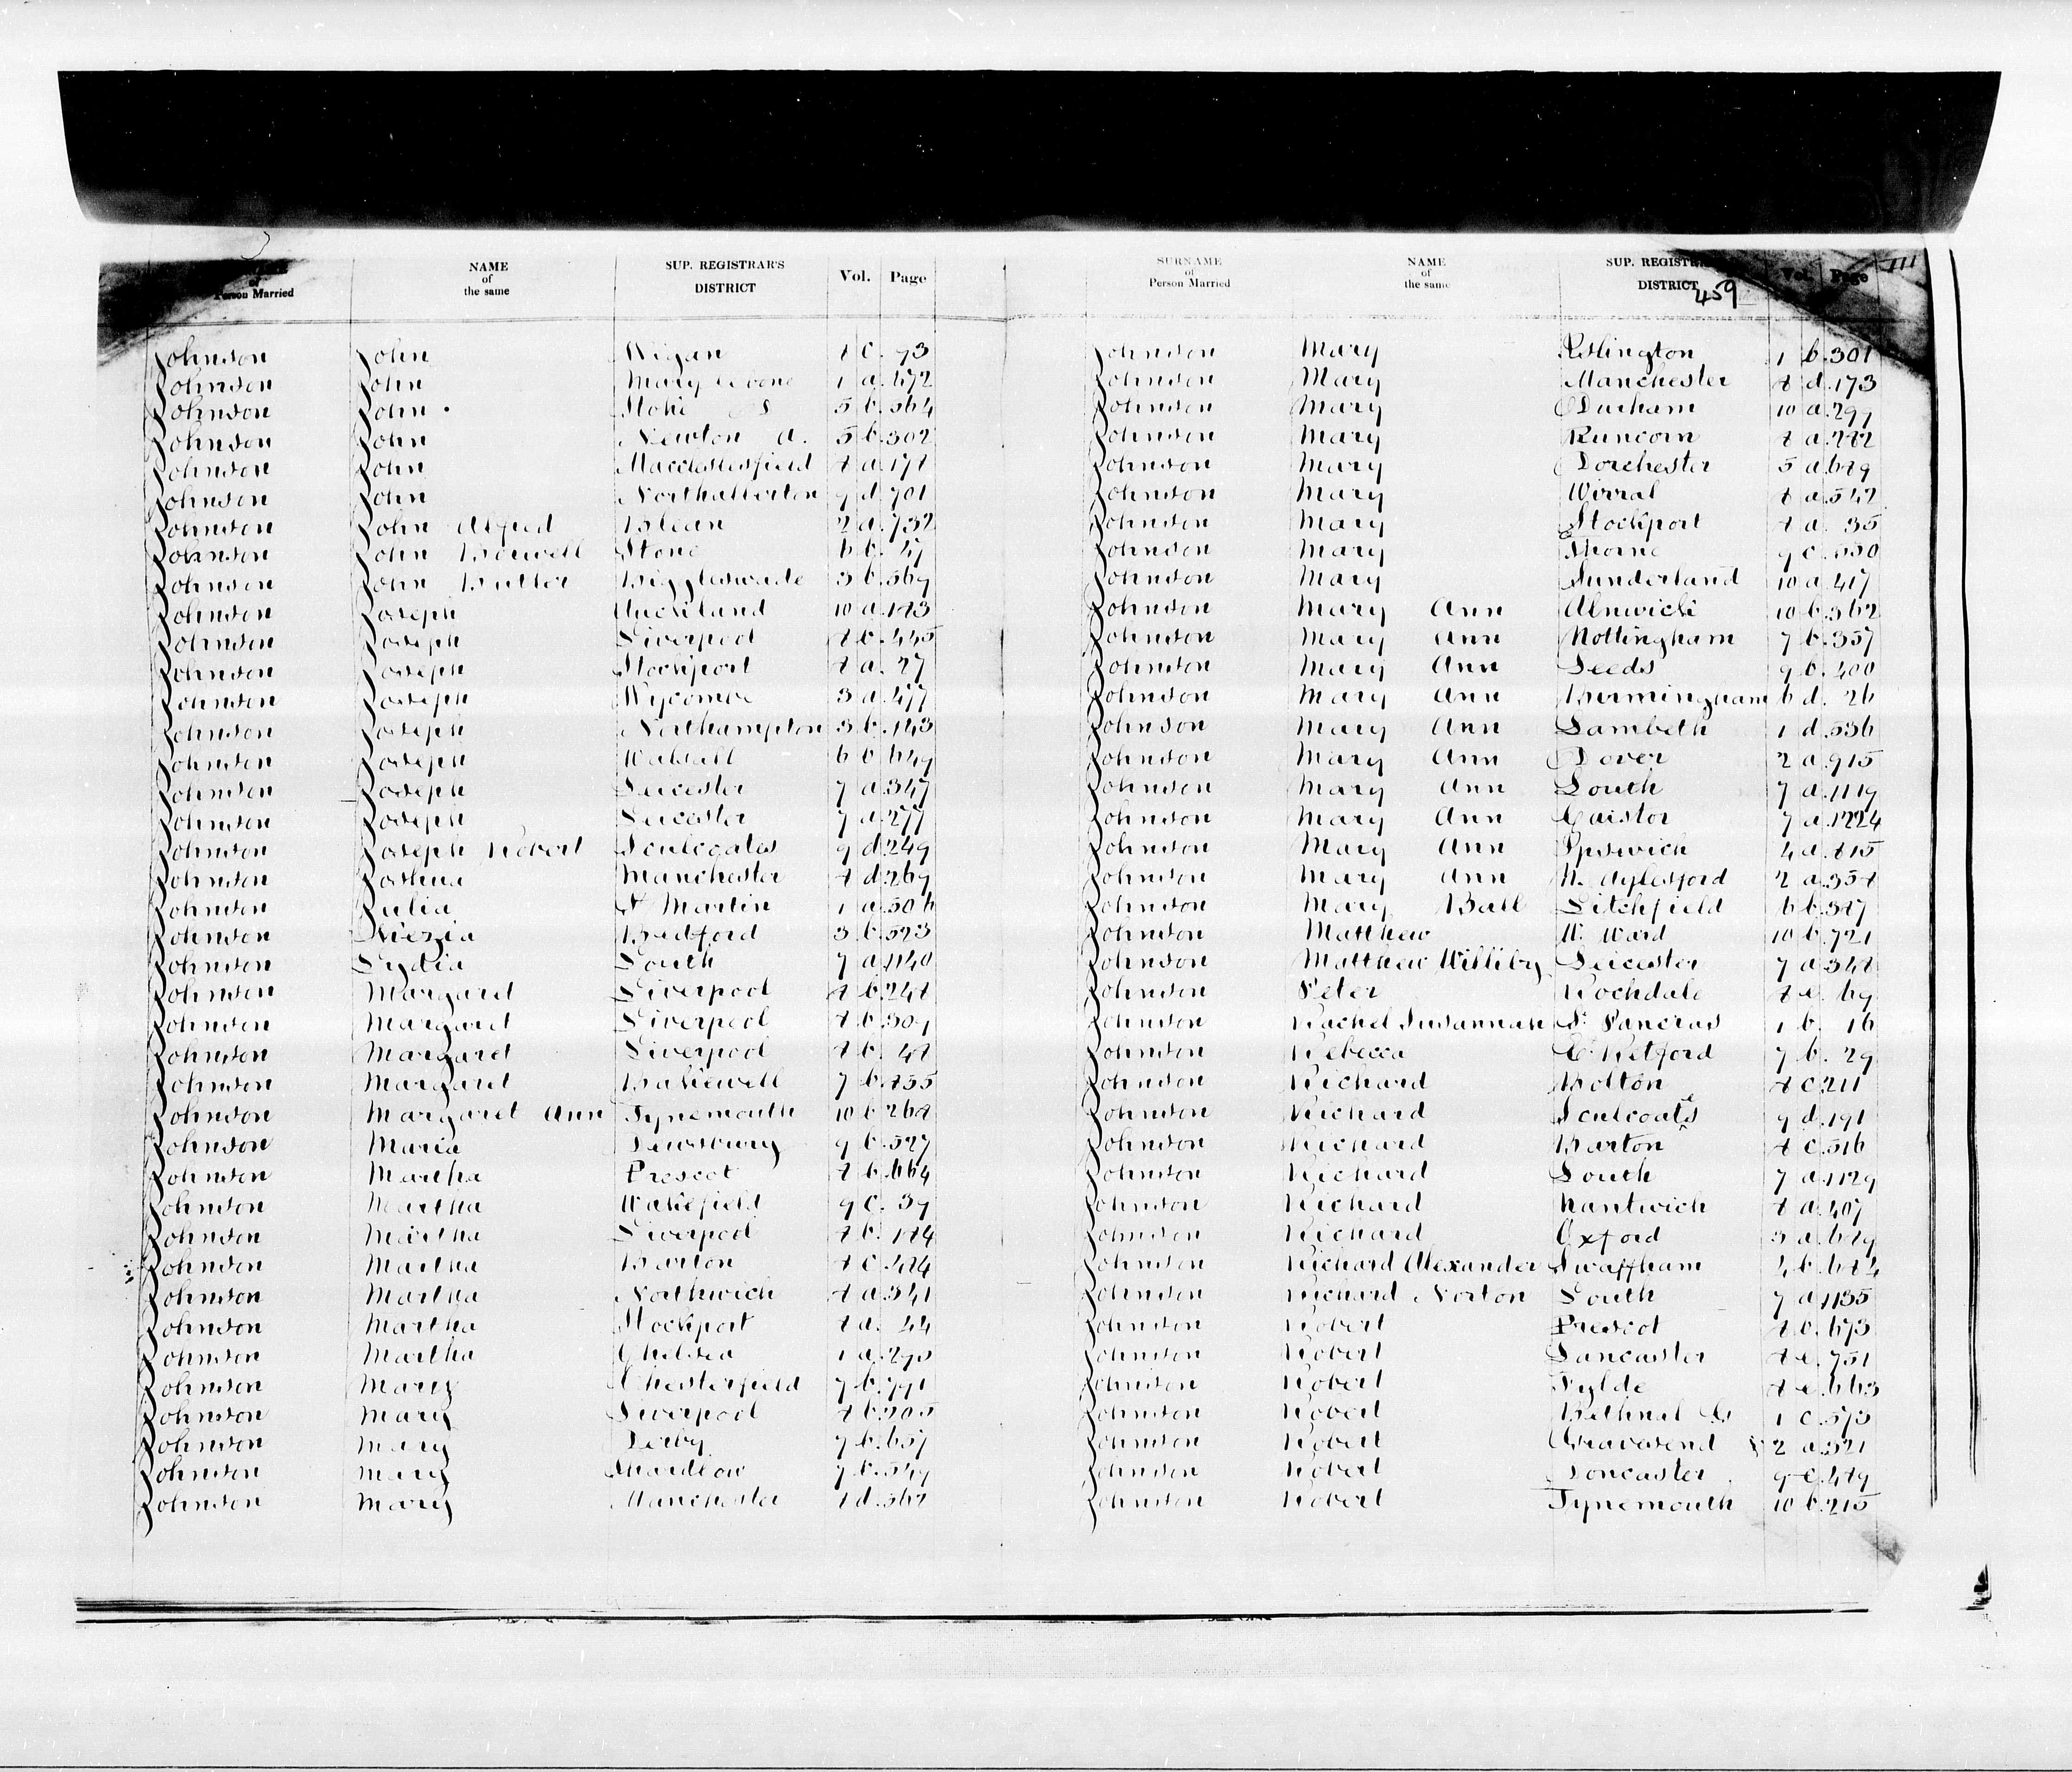 of
Person Married
NAME
of
the same
SUP. REGISTRAR'S
DISTRICT
Vol. Page
SURNAME
of
Person Married
NAME
of
the same
SUP.
DISTRICT
459
Vol. Page
Johnson John Wigan 8 c. 73
Johnson John 1 a.
Johnson John
Johnson John Newton A. 5 b. 302
Johnson John Macclesfield 8 a.
Johnson John Northallerton 9 d 701
Johnson John Alfred Blean 2 a. 732
Johnson John Stone 6 b.
Johnson John Butler Biggleswade 3 b. 569
Johnson Joseph Auckland 10 a. 183
Johnson Joseph Liverpool 8 b. 445
Johnson Joseph Stockport 8 a. 27
Johnson Joseph Wycombe 3 a. 477
Johnson Joseph Northampton 3 b. 143
Johnson Joseph Walsall 6 b 649
Johnson Joseph Leicester 7 a. 347
Johnson Joseph Leicester 7 a. 277
Johnson Joseph Robert Sculcoates 9 d. 249
Johnson Joshua Manchester 8 d. 269
Johnson Julia St Martin 1 a. 506
Johnson Kezia Bedford 3 b. 523
Johnson Lydia Louth 7 a. 1140
Johnson Margaret Liverpool 8 b. 248
Johnson Margaret Liverpool 8 b.
Johnson Margaret Liverpool 8 b. 48
Johnson Margaret Bakewell 7 b. 835
Johnson Margaret Ann Tynemouth 10 b 268
Johnson Maria Dewsbury 9 b. 527
Johnson Martha Prescot 8 b. 664
Johnson Martha Wakefield 9 c. 39
Johnson Martha Liverpool 8 b. 184
Johnson Martha Barton 8 c. 484
Johnson Martha Northwich 8 a. 341
Johnson Martha Stockport 8 a. 44
Johnson Martha Chelsea 1 a.
Johnson Mary Chesterfield 7 b. 791
Johnson Mary Liverpool 8 b. 305
Johnson Mary Derby 7 b. 657
Johnson Mary Shardlow 7 b. 549
Johnson Mary Manchester 8 d. 562
Johnson Mary Islington 1 b. 301
Johnson Mary Manchester 8 d. 173
Johnson Mary Durham 10 a. 297
Johnson Mary Runcorn 8 a. 282
Johnson Mary Dorchester 5 a. 689
Johnson Mary Wirral 8 a. 542
Johnson Mary Stockport 8 a. 35
Johnson Mary Thorne 9 c. 550
Johnson Mary Sunderland 10 a. 417
Johnson Mary Ann Alnwick 10 b. 362
Johnson Mary Ann Nottingham 7 b. 357
Johnson Mary Ann Leeds 9 b. 400
Johnson Mary Ann Birmingham 6 d. 26
Johnson Mary Ann Lambeth 1 d. 536
Johnson Mary Ann Dover 2 a. 915
Johnson Mary Ann Louth 7 a. 1119
Johnson Mary Ann Caistor 7 a. 1224
Johnson Mary Ann Ipswich 4 a. 815
Johnson Mary Ann N. Aylesford 2 a. 358
Johnson Mary Ball Litchfield 6 b.
Johnson Matthew W. Ward 10 b. 721
Johnson Matthew Williby Leicester 7 a. 348
Johnson Peter Rochdale 8 e. 69
Johnson Rachel Susannah St Pancras 1 b. 16
Johnson Rebecca E. Retford 7 b. 29
Johnson Richard Bolton 8 c. 211
Johnson Richard Sculcoates 9 d. 191
Johnson Richard Barton 8 c. 516
Johnson Richard Louth 7 a. 1129
Johnson Richard Nantwich 8 a. 407
Johnson Richard Oxford 3 a. 689
Johnson Richard Alexander Swaffham 4 b. 684
Johnson Richard Norton Louth 7 a 1135
Johnson Robert Prescot 8 b. 673
Johnson Robert Lancaster 8 e. 751
Johnson Robert Fylde 8 e. 663
Johnson Robert Bethnal G 1 c. 573
Johnson Robert Gravesend 2 a. 521
Johnson Robert Doncaster 9 c. 489
Johnson Robert Tynemouth 10 b. 215